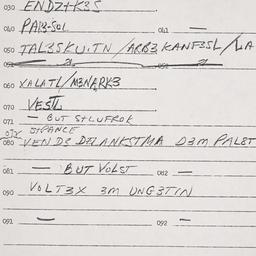 030 ENDZ+K3S
040 PAP3-SOL 041 —
050 TAL3SKU·TN / ARB3KANF3SL / LA
060 XALATL / M3NARK3
070 VESTL
071 — BUT S+LUFROK
D+PANCE
080 VEN D3 DFLANKSTMA D3M PALBT
081 — BUT VOLST 082 —
090 VOLT3X 3M UNG3TIN
091 — 092 —